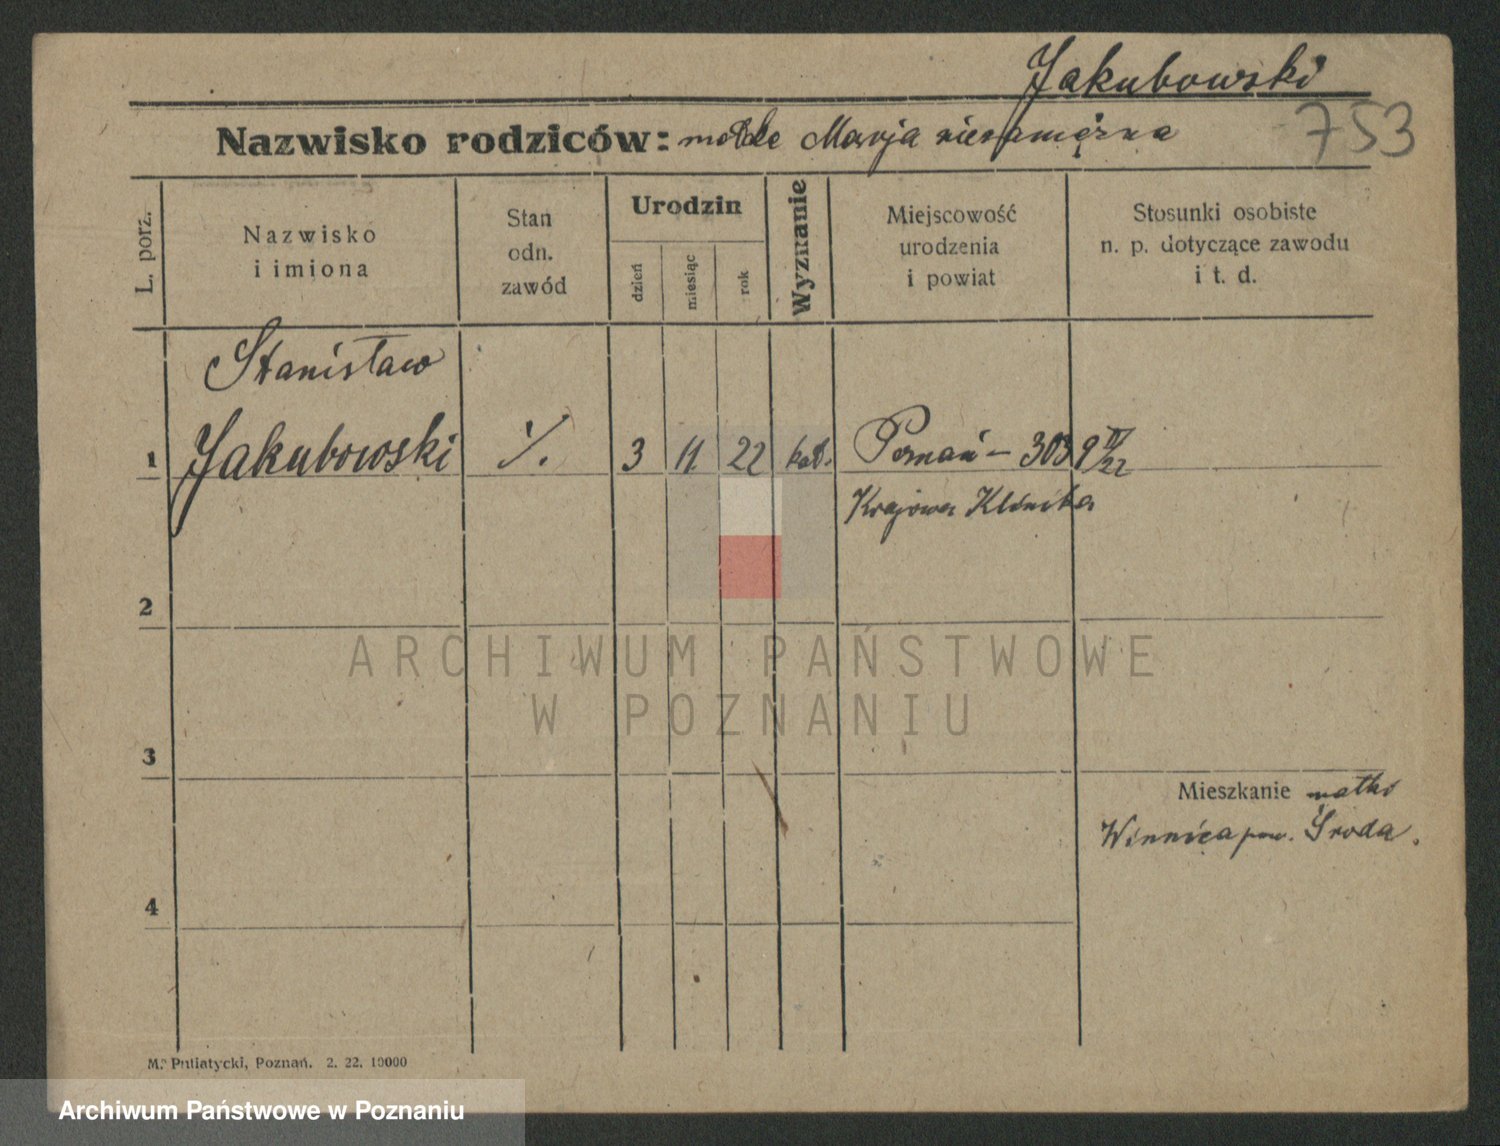 Jakubowski
Nazwisko rodziców: matka Marja niezamężna
753
L. porz.
Nazwisko
i imiona
Stan
odn.
zawód
Urodzin
dzień
miesiąc
rok
Wyznanie
Miejscowość
urodzenia
i powiat
Stosunki osobiste
n. p. dotyczące zawodu
i t. d.
Stanisław
1 Jakubowski ·/. 3 11 22 kat. Poznań – 303 9 IV/22
Krajowa Klinika
2
ARCHIWUM PAŃSTWOWE
W POZNANIU
3
Mieszkanie matki
Winnica pow. Środa.
4
M. Putiatycki, Poznań. 2. 22. 10000
Archiwum Państwowe w Poznaniu